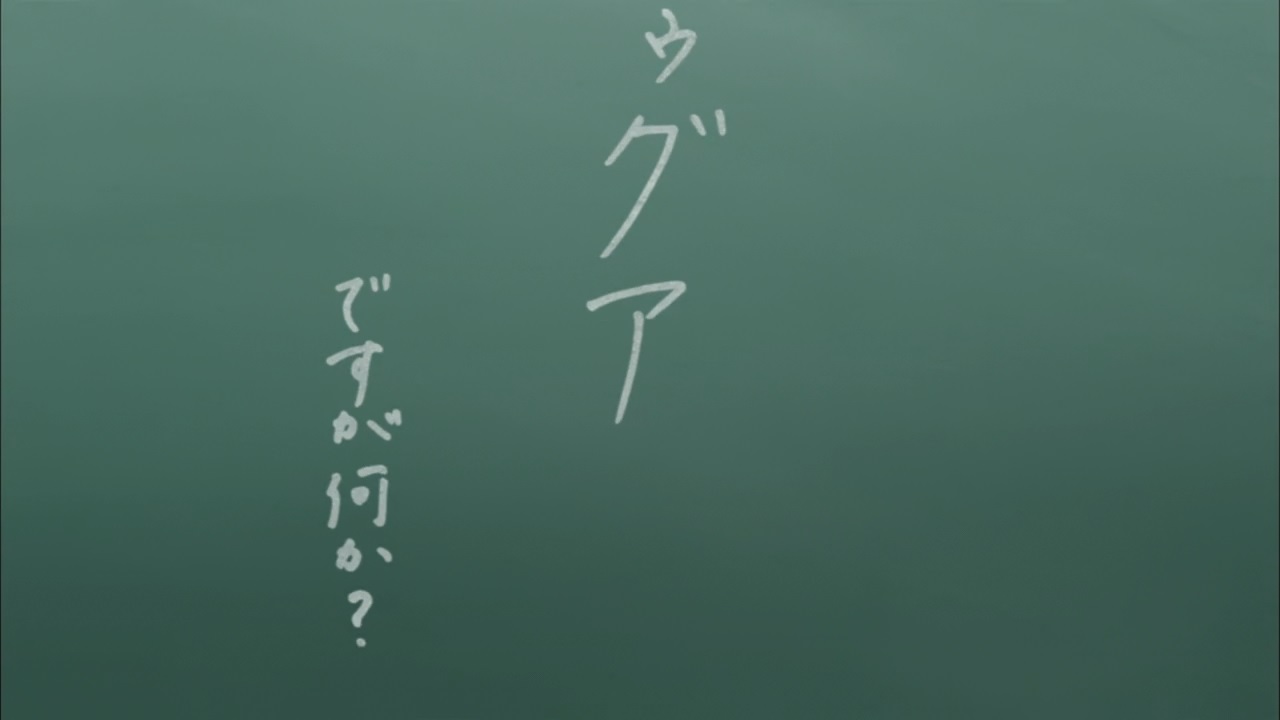 ゥグア
ですが何か?